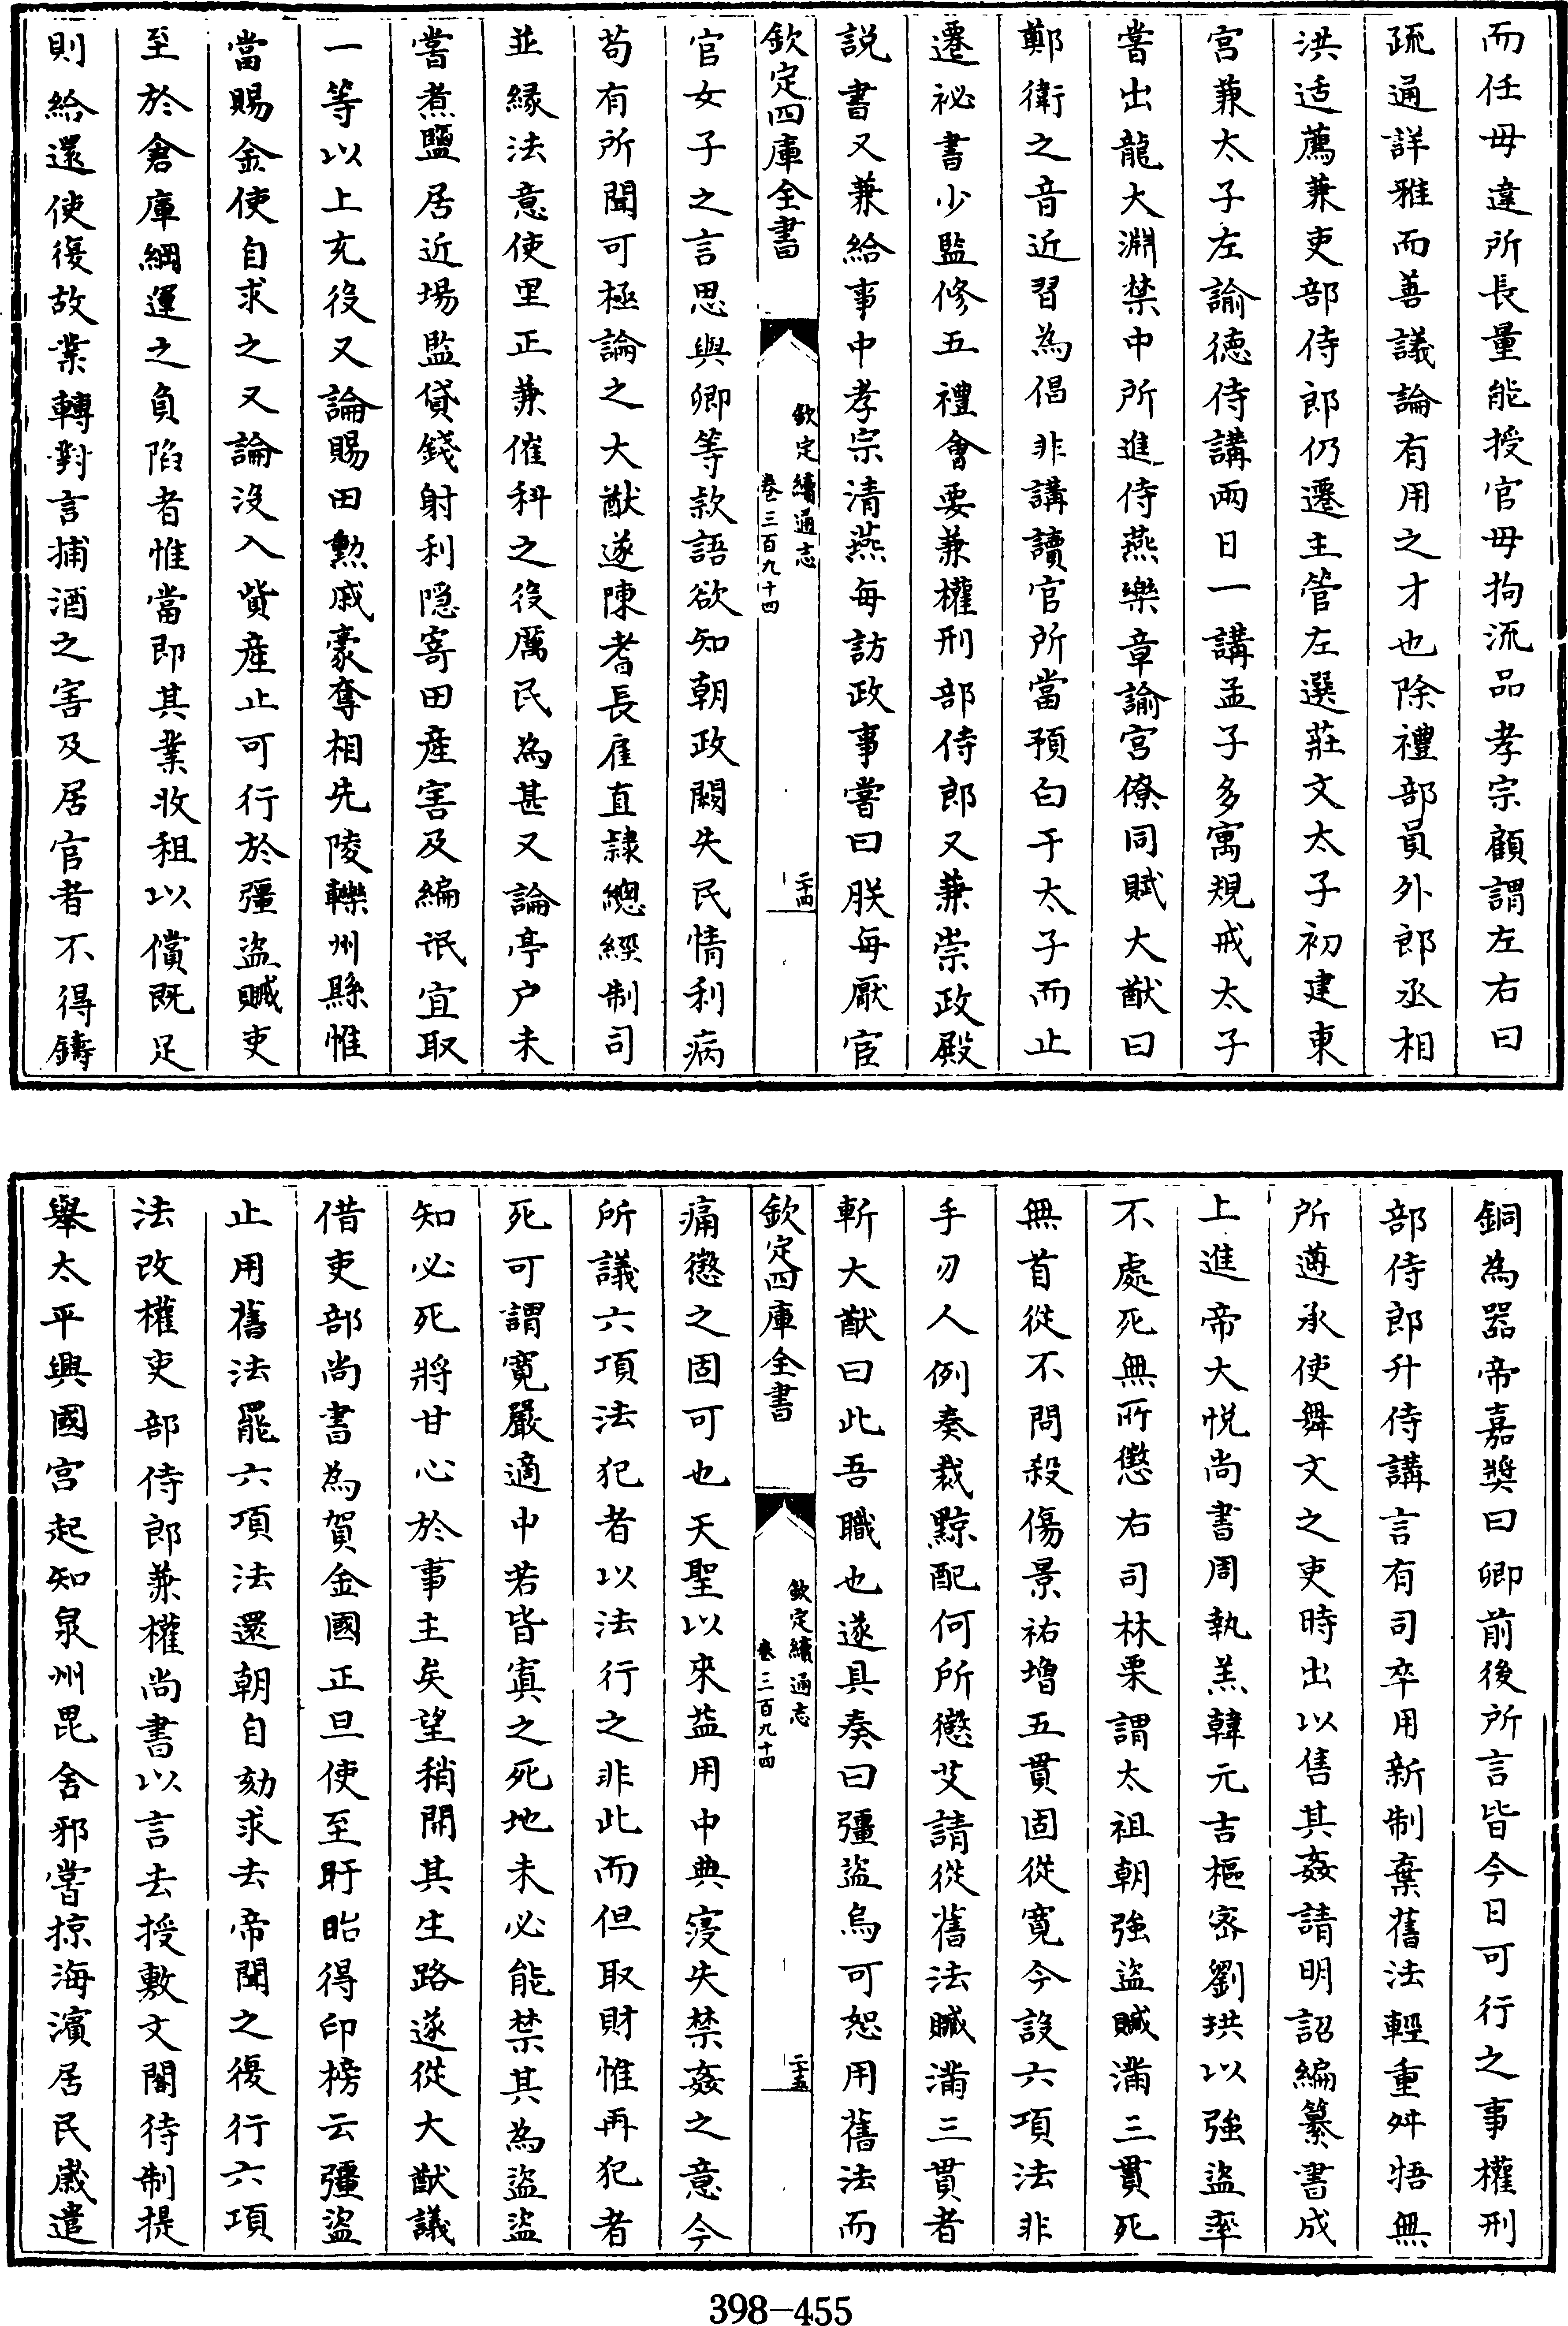 而任毋違所長量能授官毋拘流品孝宗顧謂左右曰
疏通詳雅而善議論有用之才也除禮部員外郎丞相
洪适薦兼吏部侍郎仍遷主管左選莊文太子初建東
宮兼太子左諭德侍講兩日一講孟子多寓規戒太子
嘗出龍大淵禁中所進侍燕樂章諭宮僚同賦大猷曰
鄭衛之音近習為倡非講讀官所當預白于太子而止
遷祕書少監修五禮會要兼權刑部侍郎又兼崇政殿
説書又兼給事中孝宗清燕每訪政事嘗曰朕每厭宦
欽定四庫全書
欽定續通志
卷三百九十四
二十四
官女子之言思與卿等款語欲知朝政闕失民情利病
苟有所聞可極論之大猷遂陳耆長雇直隷總經制司
並緣法意使里正兼催科之役厲民為甚又論亭户未
嘗煮鹽居近場監貸錢射利隱寄田產害及編氓宜取
一等以上充役又論賜田勲戚豪奪相先陵轢州縣惟
當賜金使自求之又論沒入貲產止可行於彊盜贓吏
至於倉庫綱運之負陷者惟當即其業收租以償既足
則給還使復故業轉對言捕酒之害及居官者不得鑄
銅為器帝嘉奬曰卿前後所言皆今日可行之事權刑
部侍郎升侍講言有司卒用新制棄舊法輕重舛牾無
所遵承使舞文之吏時出以售其姦請明詔編纂書成
上進帝大悦尚書周執羔韓元吉樞密劉珙以強盜率
不處死無所懲右司林栗謂太祖朝強盜贓滿三貫死
無首從不問殺傷景祐增五貫固從寛今設六項法非
手刃人例奏裁黥配何所懲艾請從舊法贓滿三貫者
斬大猷曰此吾職也遂具奏曰彊盜烏可恕用舊法而
欽定四庫全書
欽定續通志
卷三百九十四
二十五
痛懲之固可也天聖以來益用中典寖失禁姦之意今
所議六項法犯者以法行之非此而但取財惟再犯者
死可謂寛嚴適中若皆寘之死地未必能禁其為盜盜
知必死將甘心於事主矣望稍開其生路遂從大猷議
借吏部尚書為賀金國正旦使至盱眙得印榜云彊盜
止用舊法罷六項法還朝自劾求去帝聞之復行六項
法改權吏部侍郎兼權尚書以言去授敷文閣待制提
舉太平興國宮起知泉州毘舍邪嘗掠海濱居民歲遣
398-455